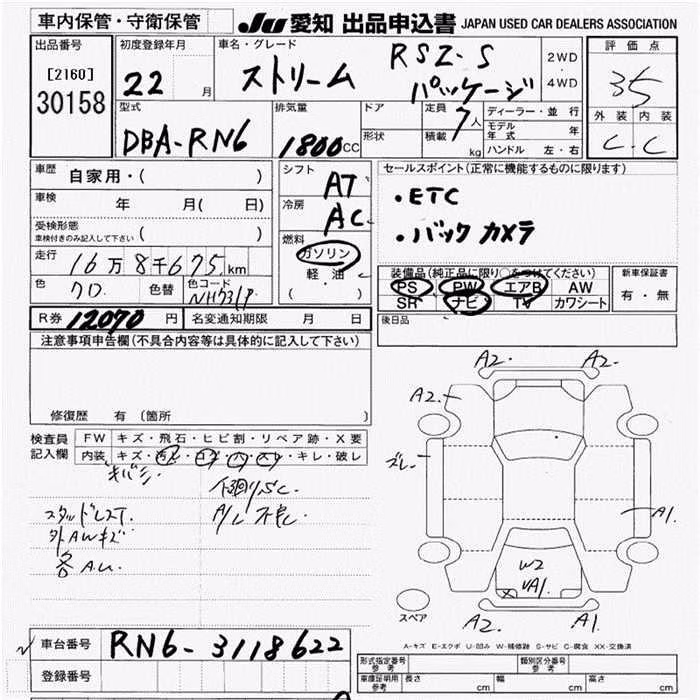 車内保管・守衛保管
JU 愛知 出品申込書 JAPAN USED CAR DEALERS ASSOCIATION
出品番号
[2160]
30158
初度登録年月
22 月
車名・グレード
ストリーム RSZ-S
パッケージ
2WD
・
4WD
評価点
3.5
外装 内装
C C
型式
DBA-RN6
排気量
1800 CC
ドア
形状
定員 7 人
積載 kg
ディーラー・並行
モデル年式 年
ハンドル 左・右
車歴 自家用・( )
車検 年 月( 日)
受検形態
車検付きのみ記入して下さい
走行 16万8千675 km
色 クロ 色替 色コード NH731P
シフト AT
冷房 AC
燃料
ガソリン
軽・油
( )
セールスポイント(正常に機能するものに限ります)
・ETC
・バックカメラ
装備品(純正品に限り○をつけてください)
PS PW エアB AW
SR ナビ TV カワシート
新車保証書
有・無
後日品
R券 12070 円 名変通知期限 月 日
注意事項申告欄(不具合内容等は具体的に記入して下さい)
修復歴 有 〔箇所 〕
検査員記入欄
FW キズ・飛石・ヒビ割・リペア跡・X要
内装 キズ・汚れ・コゲ・穴・スレ・キレ・破レ
スタッドレスT.
外AWキズ
各A.U.
下廻り
A/L不良
A2. A2.
A2.
ズレ
A1.
W2
A2. A1.
スペア
A-キズ E-エクボ U-凹み W-補修跡 S-サビ C-腐食 XX-交換済
車台番号 RN6-3118622
登録番号
形式指定番号 参考 類別区分番号 参考
車庫証明用 参考 長さ cm 幅 cm 高さ cm